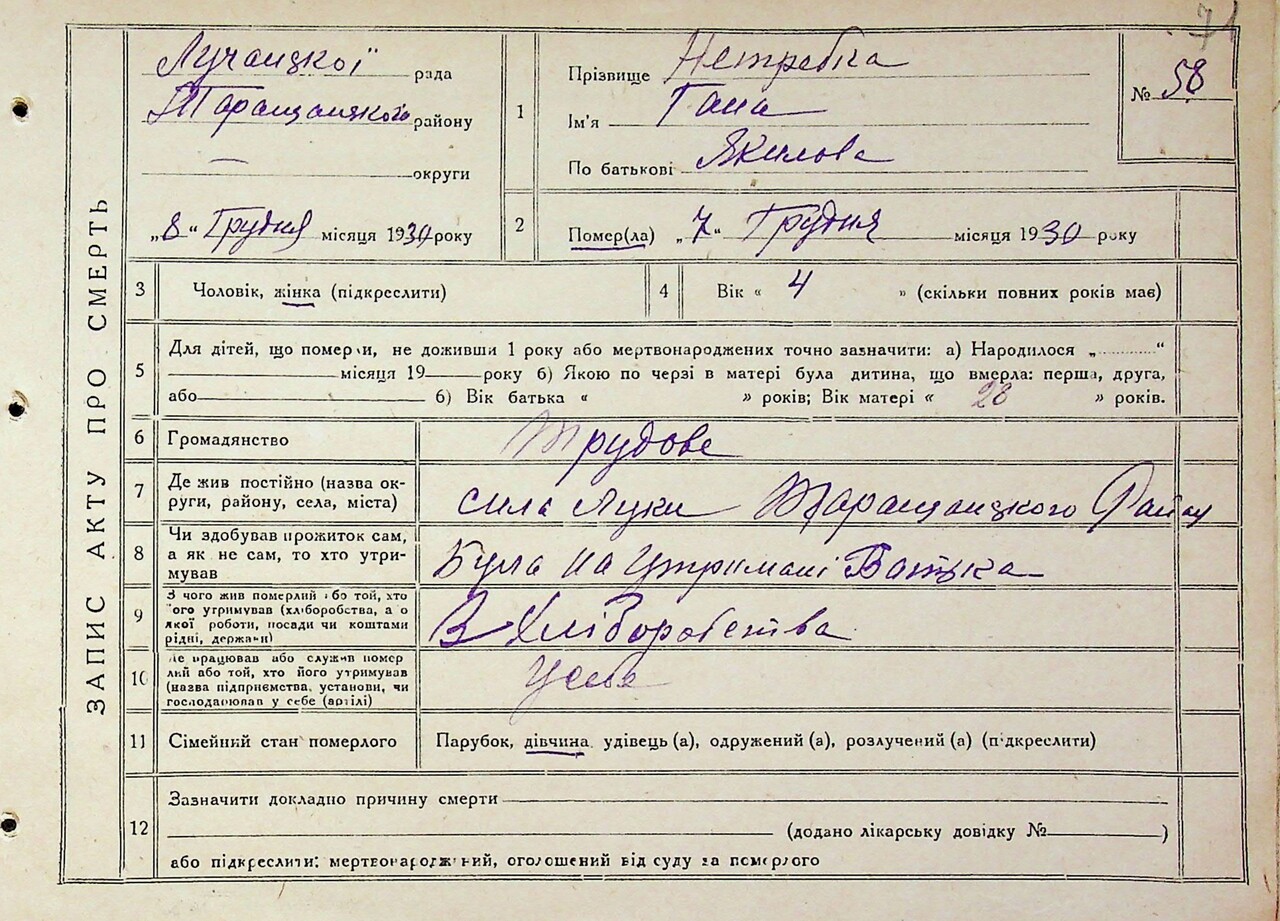 71
ЗАПИС АКТУ ПРО СМЕРТЬ
Лучанцкої рада
Таращанцкого району
— округи
„8" Грудня місяця 1930 року
1
Прізвище Нетребка
Ім'я Гана
По батькові Якилова
№ 58
2
Помер(ла) „7" Грудня місяця 1930 року
3
Чоловік, жінка (підкреслити)
4
Вік « 4 » (скільки повних років має)
5
Для дітей, що померли, не доживши 1 року або мертвонароджених точно зазначити: а) Народилося „ “
місяця 19 року б) Якою по черзі в матері була дитина, що вмерла: перша, друга,
або б) Вік батька « » років; Вік матері « 28 » років.
6
Громадянство
Трудове
7
Де жив постійно (назва ок-
руги, району, села, міста)
сила Луки Таращанцкого Району
8
Чи здобував прожиток сам,
а як не сам, то хто утри-
мував
Була на Утримані Батька
9
З чого жив померлий або той, хто
його утримував (хліборобства, а о
якої роботи, посади чи коштами
рідні, держави)
З Хліборобства
10
Де працював або служив помер
лий або той, хто його утримував
(назва підприємства, установи, чи
господарював у себе (артілі)
Усебе
11
Сімейний стан померлого
Парубок, дівчина, удівець (а), одружений (а), розлучений (а) (підкреслити)
12
Зазначити докладно причину смерти
(додано лікарську довідку № )
або підкреслити: мертвонароджений, оголошений від суду за померлого